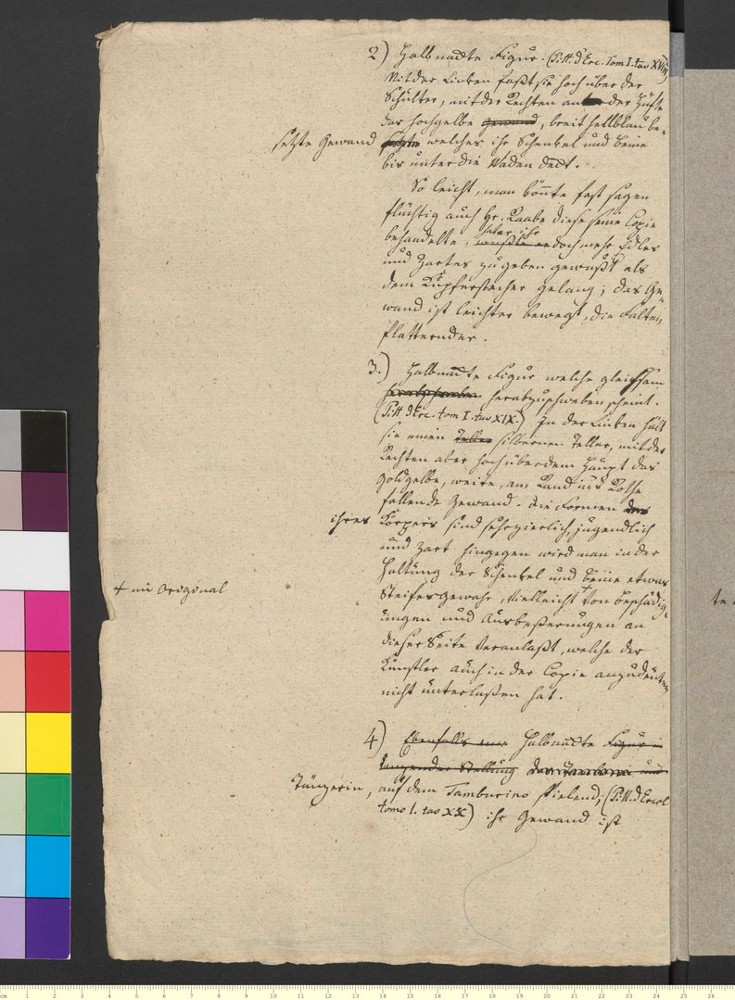 2) Halbnackte Figur. (Pitt. d'Erc. Tom I. tav XVIII)
Mit der Linken faßt sie hoch über der
Schulter, mit der Rechten an der Hüfte
das hochgelbe Gewand, breit hellblau be-
setzte Gewand welches ihr Schenkel und Beine
bis unter die Waden deckt.
So leicht, man könnte fast sagen
flüchtig auch Hr. Raabe diese seine Copie
behandelte, aber ihr doch mehr Edles
und Zartes zu geben gewußt als
dem Kupferstecher gelang; das Ge-
wand ist leichter bewegt, die Falten
flatternder.
3.) Halbnackte Figur welche gleichsam
herabzuschweben scheint.
(Pitt. d'Erc. tom I. tav XIX.) In der Linken hält
sie einen Teller silbernen Teller, mit der
Rechten aber hoch über dem Haupt das
goldgelbe, weite, am Rand ins Rothe
fallende Gewand. Die Formen des
ihres Körpers sind sehr zierlich, jugendlich
und zart hingegen wird man in der
Haltung der Schenkel und Beine etwas
Steifes gewahr, vielleicht + von Beschädig-
+ im Original
ungen und Ausbeßerungen an
dieser Seite veranlaßt, welche der
Künstler auch in der Copie anzudeuten
nicht unterlaßen hat.
4) Ebenfalls eine Halbnackte Figur in
tanzender Stellung und
Tänzerin, auf dem Tamburino spielend; (Pitt. d'Ercol
tomo I. tav XX) ihr Gewand ist